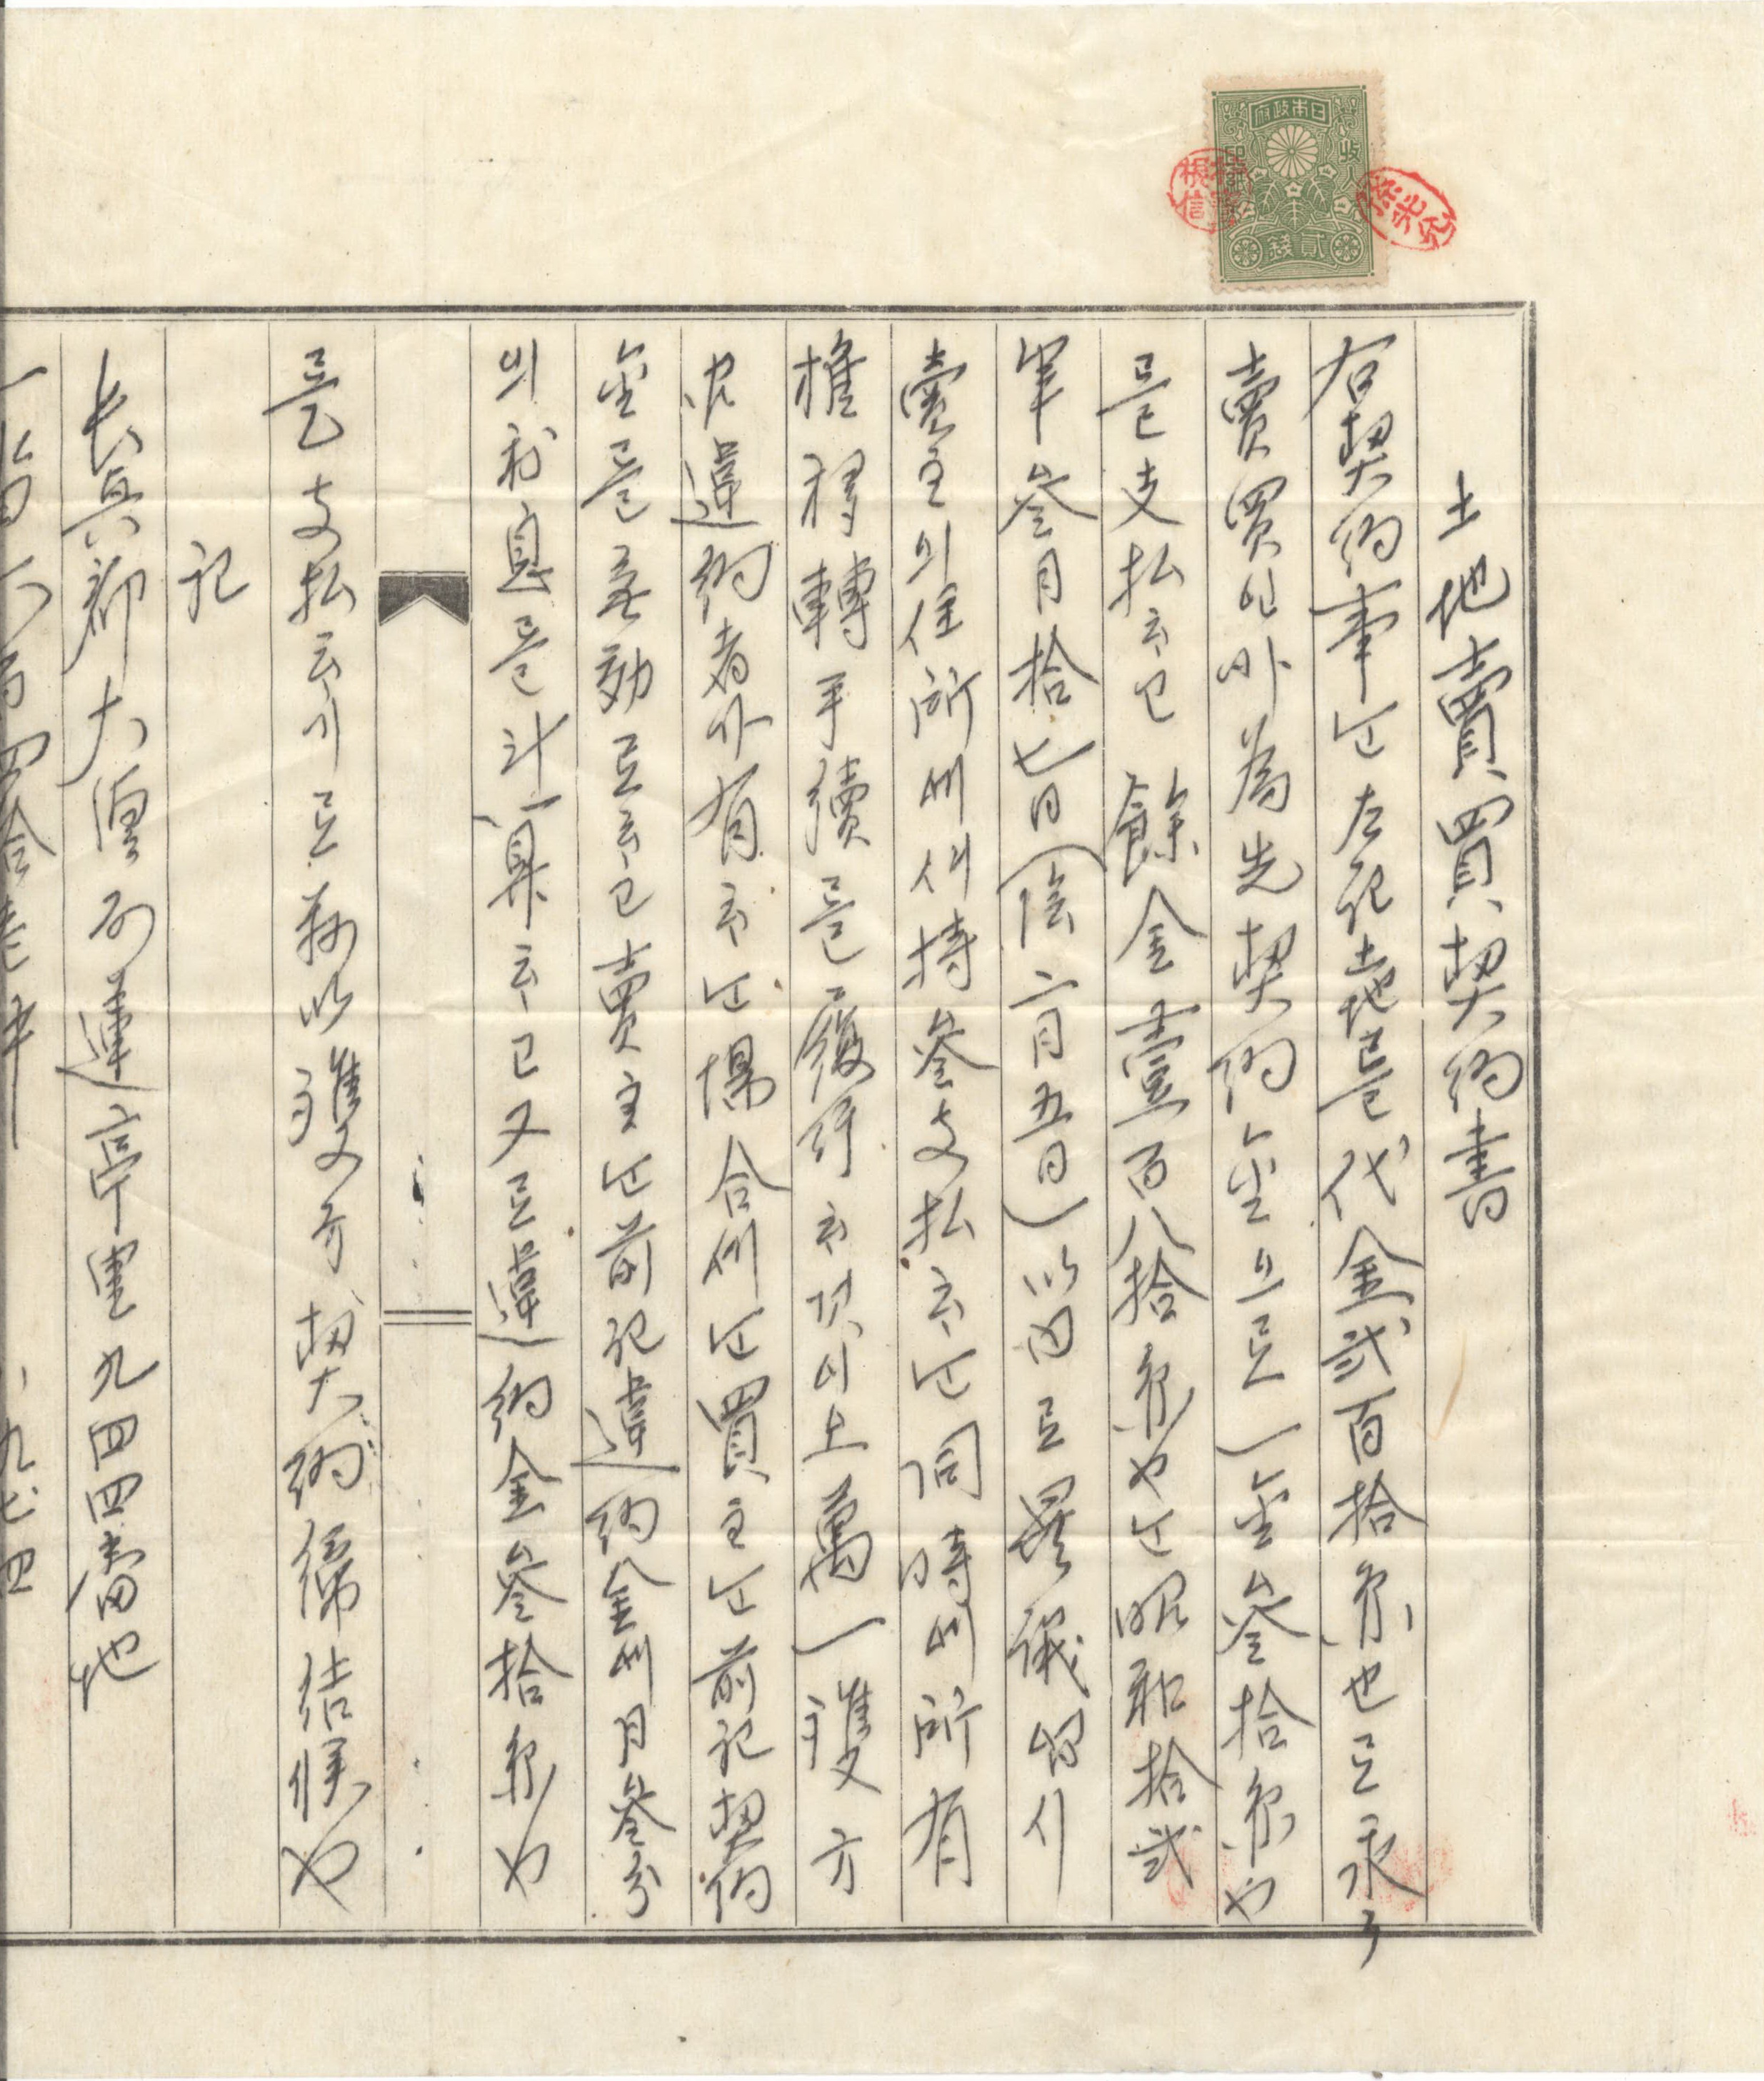 日本政府
收入印紙
貳錢
土地賣買契約書
右契約事는左記土地를代金貳百拾円也로永々
賣買인바為先契約金으로一金參拾円也
를支払하고餘金壹百八拾円也는昭和拾貳
年參月拾七日(陰二月五日)以内로異議업시
賣主의住所에서持參支払하는同時에所有
權移轉手續을履行하것이고萬一雙方
中違約者가有하는境合에는買主는前記契約
金을無効로하고賣主는前記違約金에月參分
의利息을計算하고又로違約金參拾円也
를支払하기로玆以雙方契約締結候也
記
長興郡大德面蓮亭里九四四番地